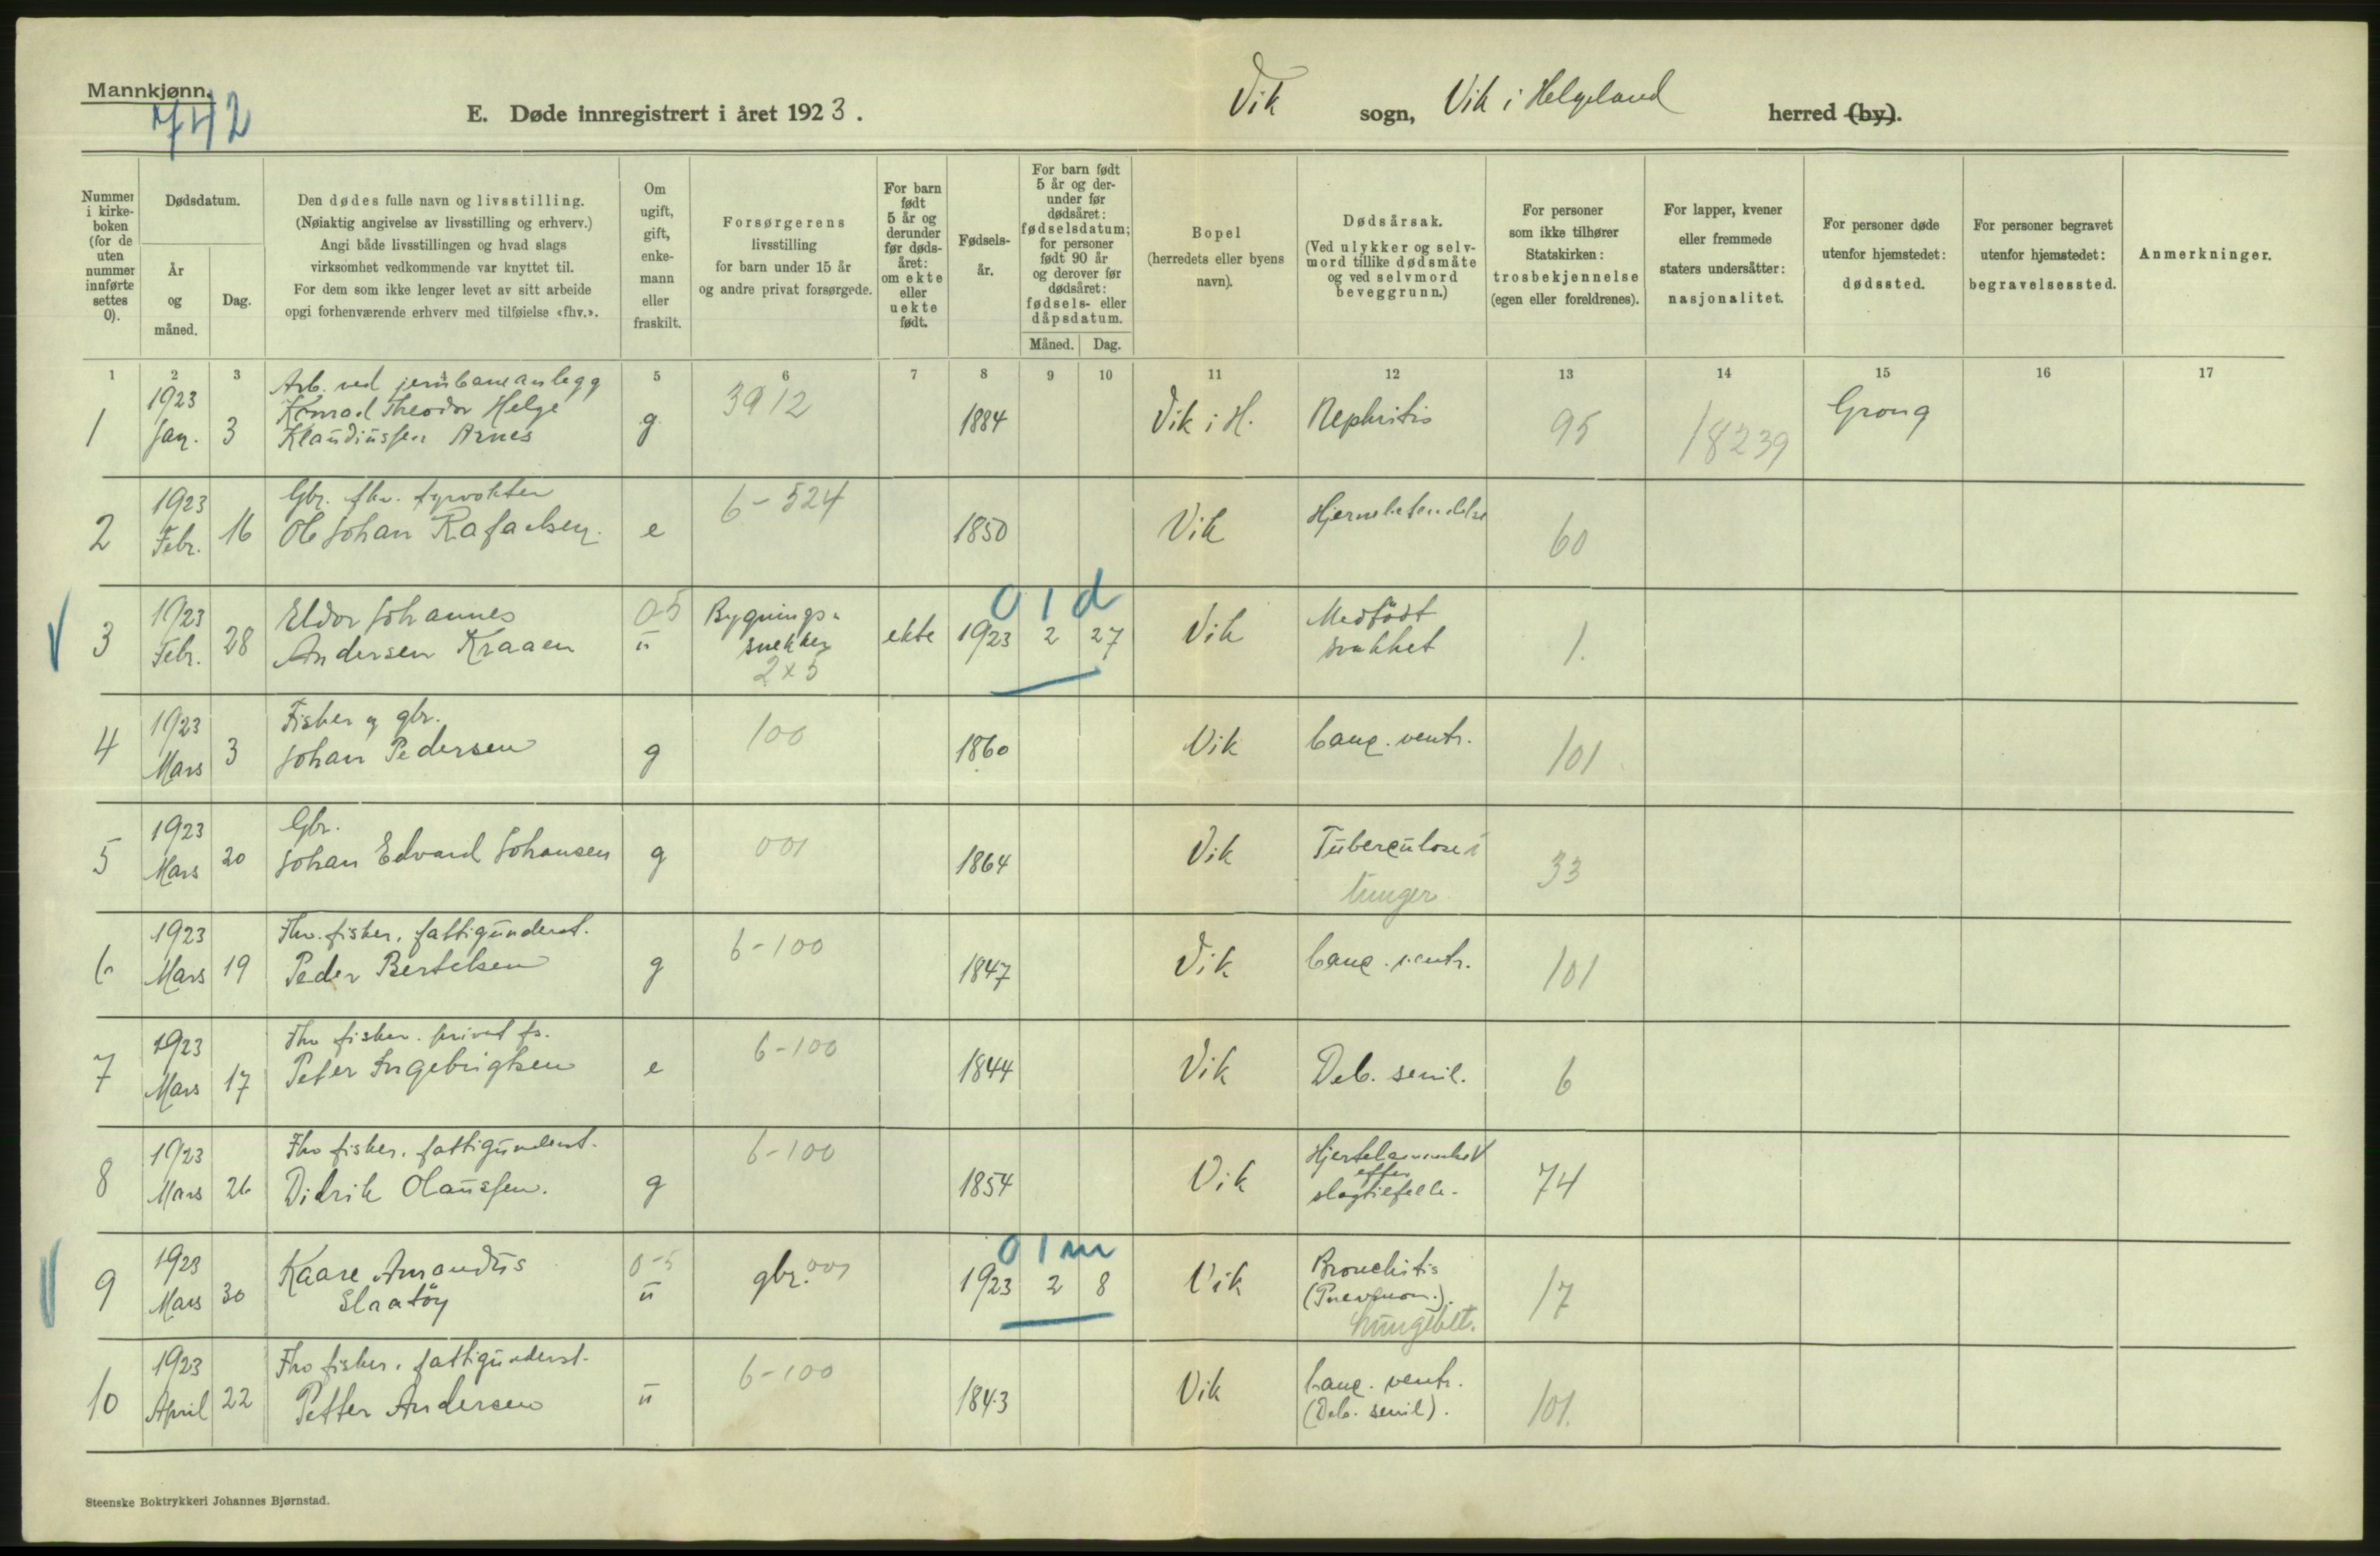 Mannkjønn.
742
E. Døde innregistrert i året 1923.
Vik sogn, Vik i Helgeland herred (by).
Nummer i kirke-boken (for de uten nummer innførte settes 0).
Dødsdatum.
År og måned.
Dag.
Den dødes fulle navn og livsstilling.
(Nøiaktig angivelse av livsstilling og erhverv.)
Angi både livsstillingen og hvad slags
virksomhet vedkommende var knyttet til.
For dem som ikke lenger levet av sitt arbeide
opgi forhenværende erhverv med tilføielse «fhv.».
Om ugift, gift, enke-mann eller fraskilt.
Forsørgerens
livsstilling
for barn under 15 år
og andre privat forsørgede.
For barn født 5 år og derunder før døds-året: om ekte eller uekte født.
Fødsels-år.
For barn født 5 år og der-under før dødsåret: fødselsdatum; for personer født 90 år og derover før dødsåret: fødsels- eller dåpsdatum.
Måned. Dag.
Bopel
(herredets eller byens
navn).
Dødsårsak.
(Ved ulykker og selv-
mord tillike dødsmåte
og ved selvmord
beveggrunn.)
For personer
som ikke tilhører
Statskirken:
trosbekjennelse
(egen eller foreldrenes).
For lapper, kvener
eller fremmede
staters undersåtter:
nasjonalitet.
For personer døde
utenfor hjemstedet:
dødssted.
For personer begravet
utenfor hjemstedet:
begravelsessted.
Anmerkninger.
1 2 3 4 5 6 7 8 9 10 11 12 13 14 15 16 17
Arb. ved jernbaneanlegg
1 1923 Jan. 3 Konrad Theodor Helge
Klaudiussen Arnes g 3912 1884 Vik i H. Nephritis 95 18239 Grong
Gbr. fhv. fyrvokter
2 1923 Febr. 16 Ole Johan Rafaelsen. e 6-524 1850 Vik Hjernebetendelse 60
3 1923 Febr. 28 Eldor Johannes
Andersen Kraaen 0-5 ü Bygnings-
snekker
2x5 ekte 1923 2 27 01d Vik Medfödt
svakhet 1.
Fisker og gbr.
4 1923 Mars 3 Johan Pedersen g 100 1860 Vik Canc. ventr. 101
Gbr.
5 1923 Mars 20 Johan Edvard Johansen g 001 1864 Vik Tüberculose i
lunger 33
Fhv. fisker, fattigünderst.
6 1923 Mars 19 Peder Bertelsen g 6-100 1847 Vik Canc. ventr. 101
Fhv fisker. privat fs.
7 1923 Mars 17 Peter Ingebrigtsen e 6-100 1844 Vik Deb. senil. 6
Fhv fisker, fattigünderst.
8 1923 Mars 26 Didrik Olaüssen. g 6-100 1854 Vik
efter
slagtilfelle. 74
9 1923 Mars 30 Kaare Amandus 0-5 ü gbr. 001 1923 2 8 01m Vik Bronchitis
(Pneumon.).
Lüngebet. 17
Fhv fisker, fattigünderst.
10 1923 April 22 Petter Andersen ü 6-100 1843 Vik Canc. ventr.
(Deb. senil). 101.
Steenske Boktrykkeri Johannes Bjørnstad.